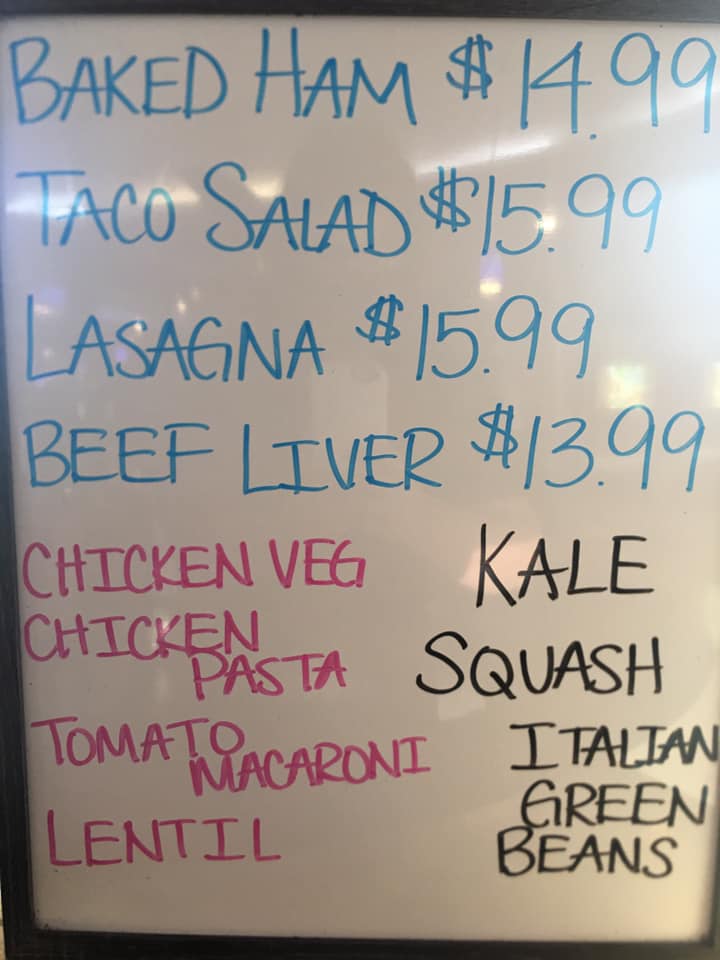 BAKED HAM $14.99
TACO SALAD $15.99
LASAGNA $15.99
BEEF LIVER $13.99
CHICKEN VEG
CHICKEN
PASTA
TOMATO
MACARONI
LENTIL
KALE
SQUASH
ITALIAN
GREEN
BEANS